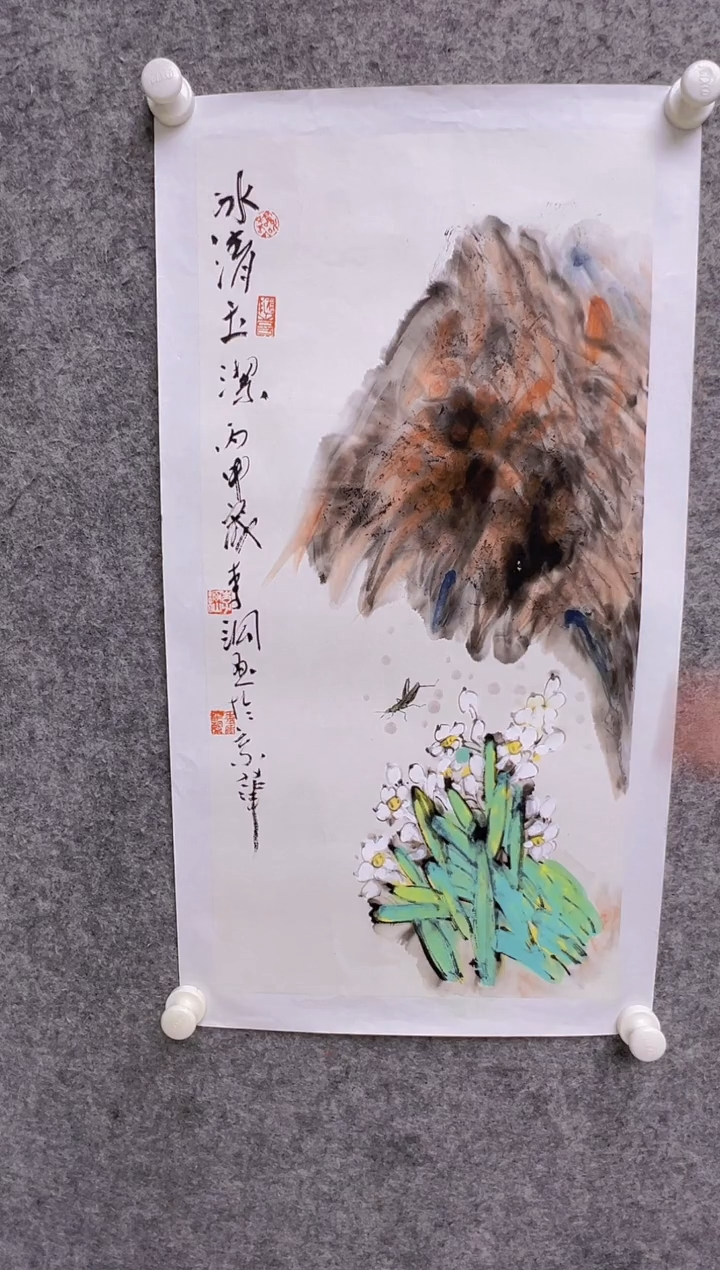 冰清玉潔丙申歲李澗畫於京華